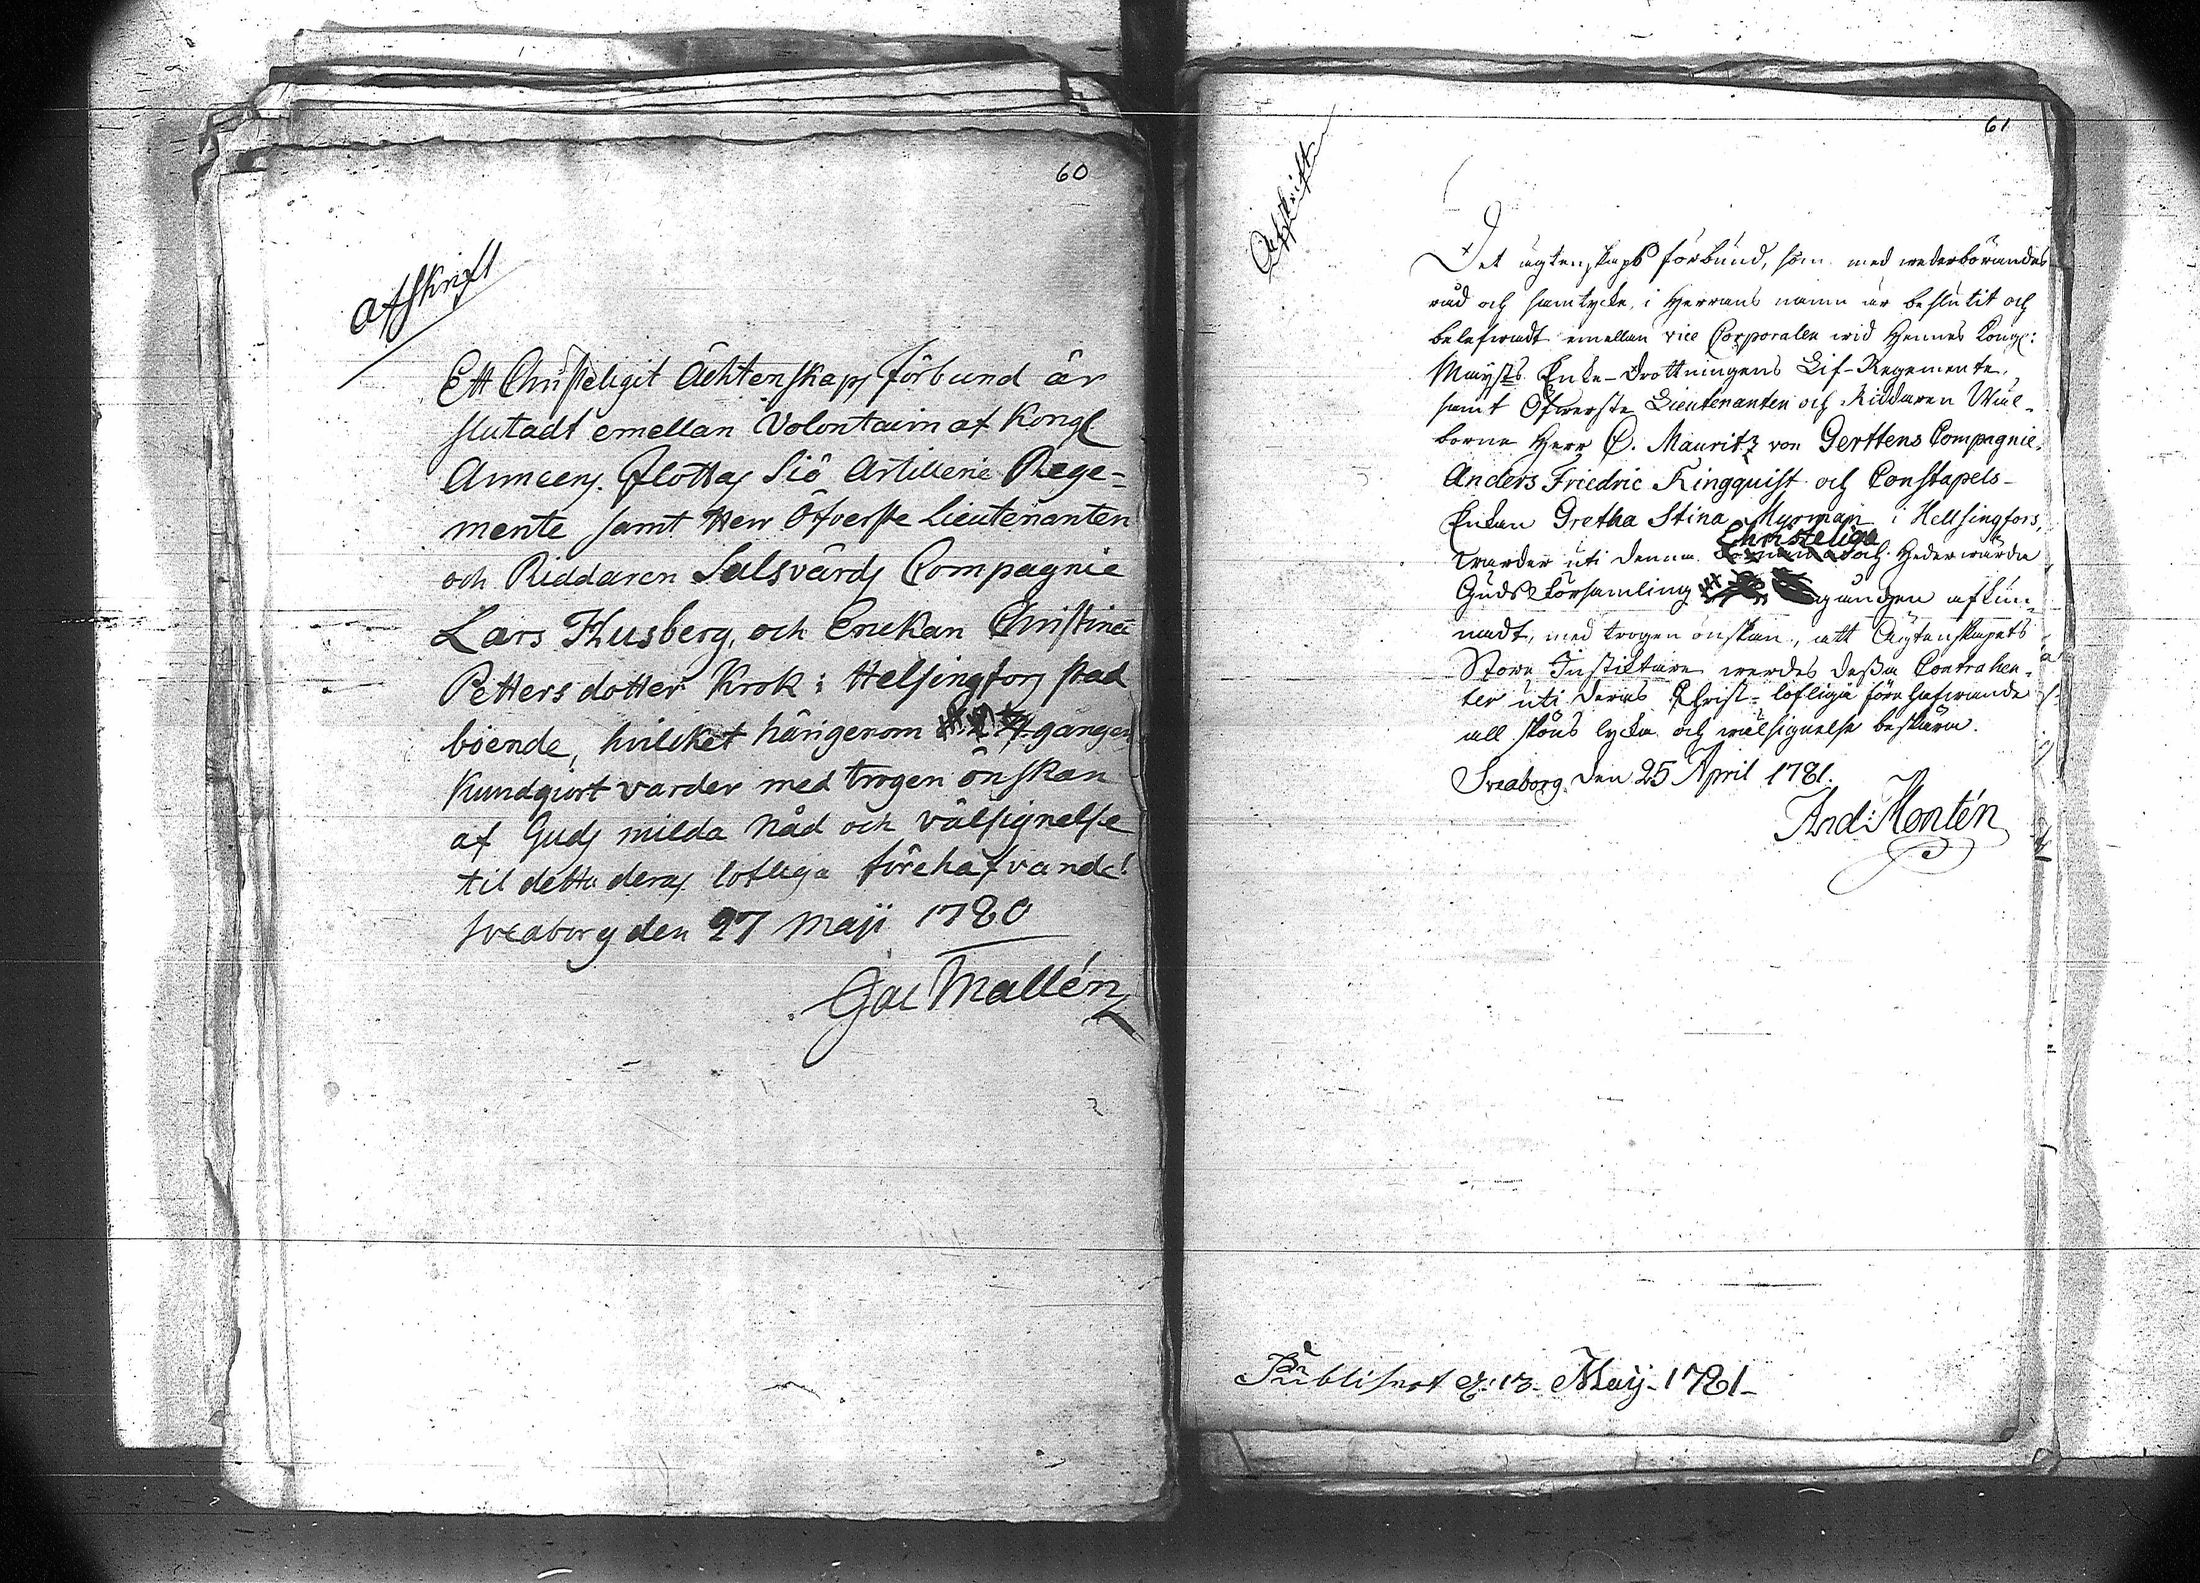 60
Afskrift
Ett Christeligit Ächtenskaps förbund är
slutadt emellan Volontairn af Kongl
Armeens Flottas Siö Artillerie Rege=
mente samt Herr Öfverste Lieutenanten
och Riddaren Salsvärds Compagnie
Lars Husberg, och Enckan Christina
Petters dotter Krok i Helsingfors stad
boende, hvilcket härigenom gången
Kundgiort varder med trogen önskan
af Guds milda Nåd och välsignelse
til detta deras lofliga förehafvande!
Sveaborg den 27 Maji 1780
Gac Mallén
61
Afskrift
Det ägtenskaps förbund, som med wederbörandes
råd och samtycke, i Herrans namn är beslutit och
belefwadt emellan vice Corporalen wid Hennes Kongl:
Maijsts Enke-Drottningens Lif-Regemente,
samt Öfwerste Lieutenanten och Riddaren Wäl-
borne Herr C. Mauritz von Gerttens Compagnie,
Anders Friedric Ringquist och Constapels-
Enkan Gretha Stina Myrman i Hellsingfors,
Christeliga
warder uti denna och Hederwärda
Guds Församling gången afkun-
nadt, med trogen önskan, att Ägtenskapets
Store Instiktare werdes dessa Contrahen-
ter uti deras Christ- lofliga förehafwande
all sköns lycka och wälsignelse beskära.
Sveaborg den 25 April 1781.
And: Montén
Publiserat d: 13 Maij 1781